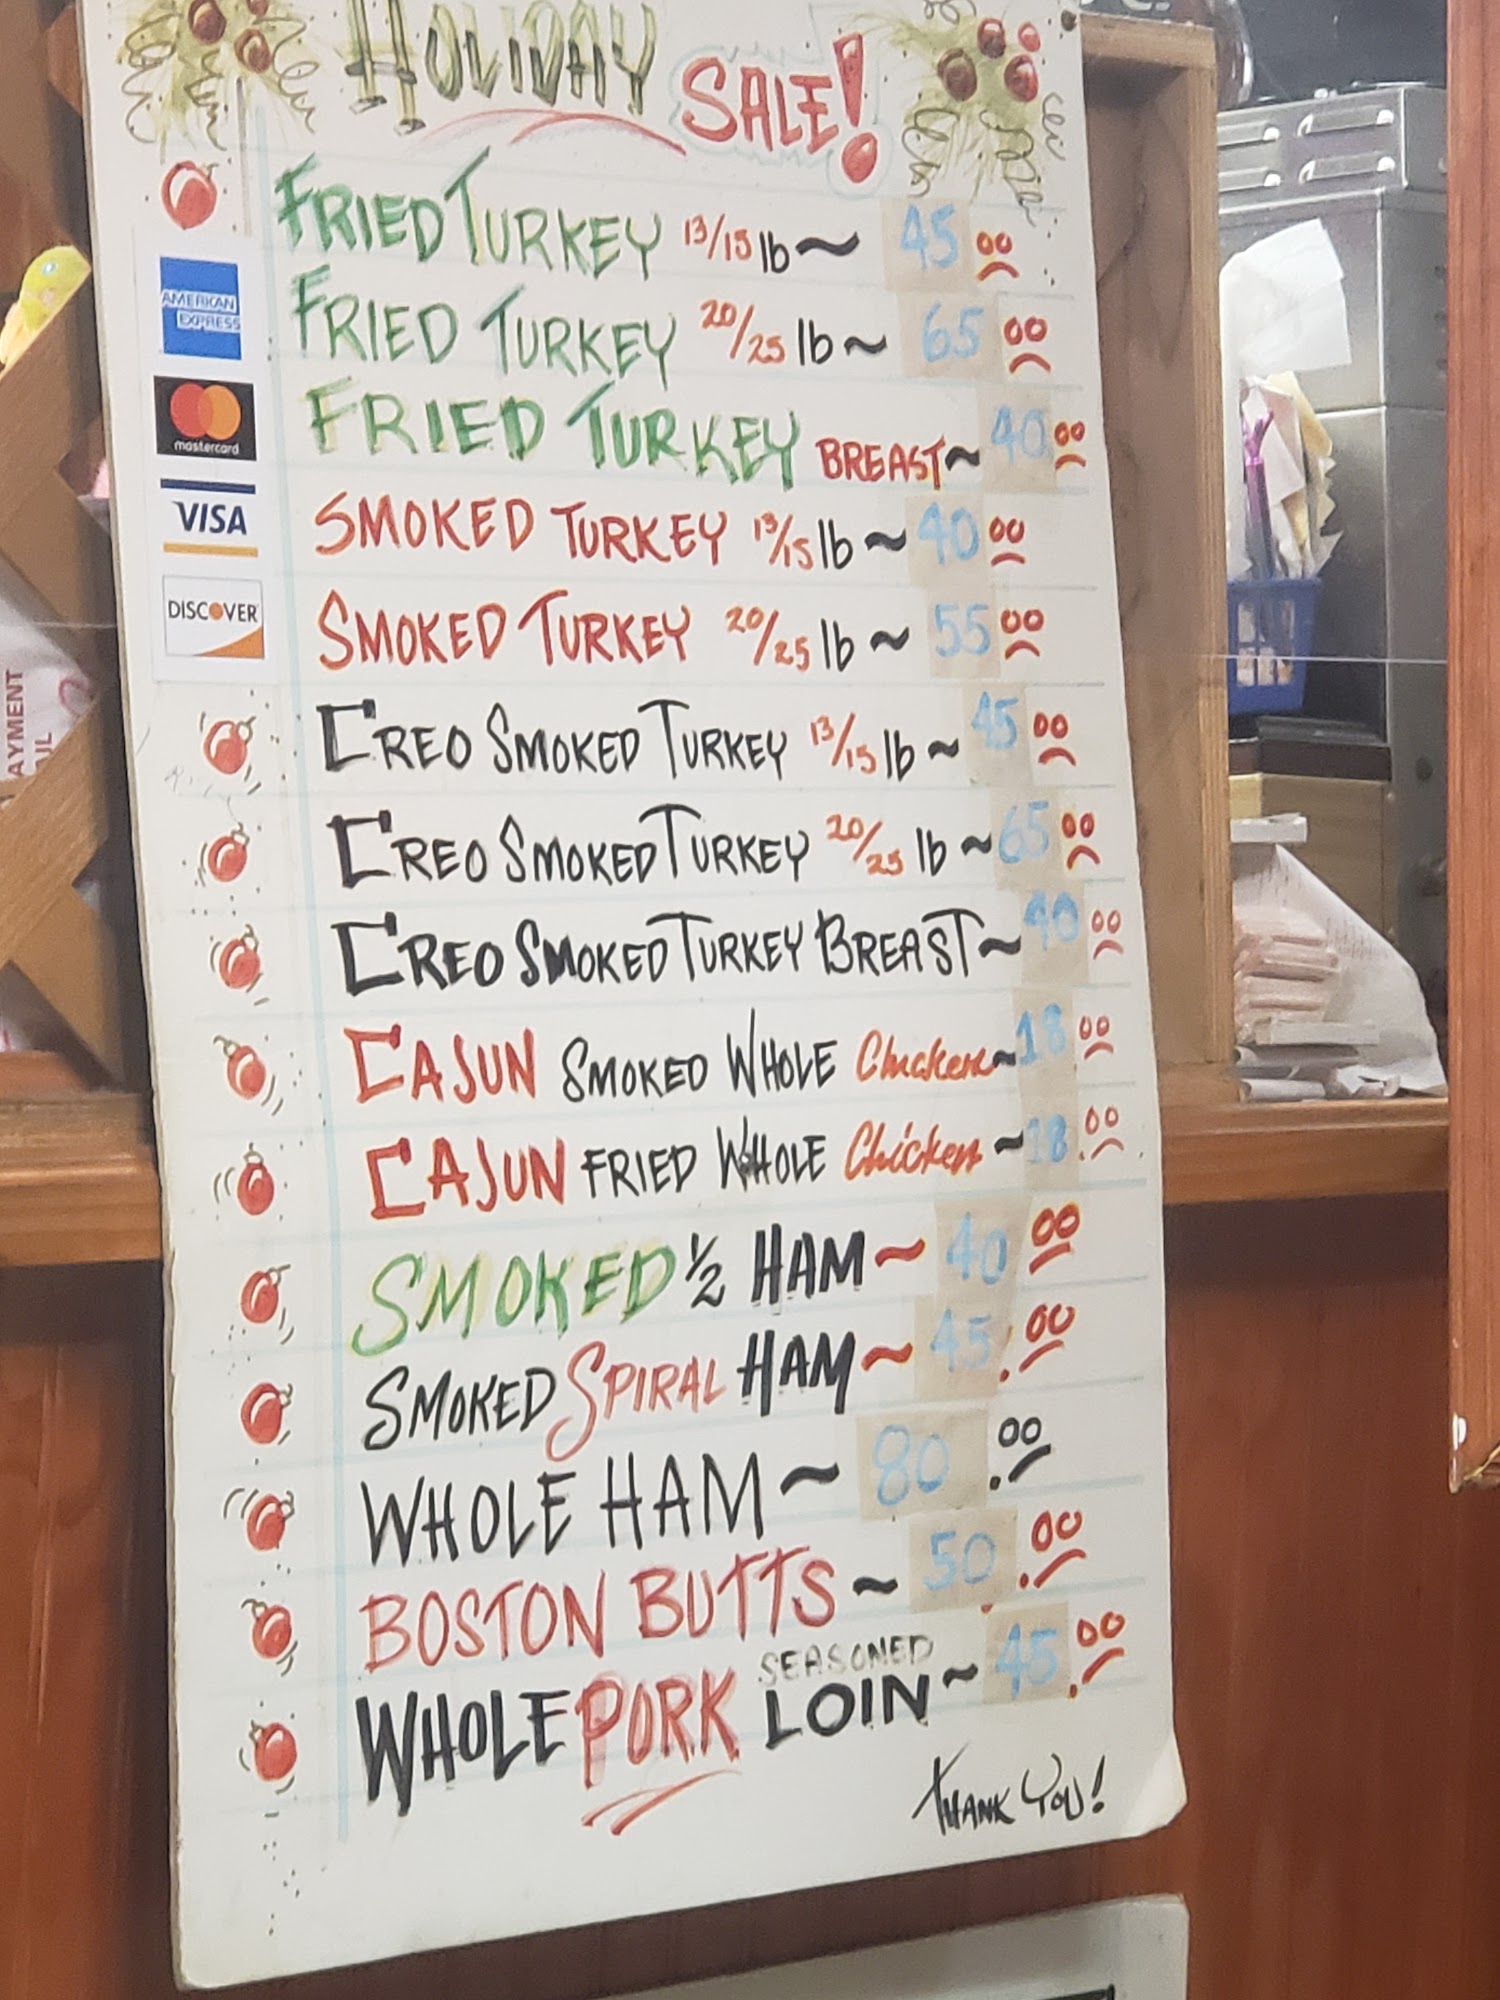 HOLIDAY SALE!
FRIED TURKEY 13/15 lb ~ 45 00
AMERICAN EXPRESS
FRIED TURKEY 20/25 lb ~ 65 00
mastercard
FRIED TURKEY BREAST ~ 40 00
VISA
SMOKED TURKEY 13/15 lb ~ 40 00
DISCOVER
SMOKED TURKEY 20/25 lb ~ 55 00
CREO SMOKED TURKEY 13/15 lb ~ 45 00
CREO SMOKED TURKEY 20/25 lb ~ 65 00
CREO SMOKED TURKEY BREAST ~ 40 00
CAJUN SMOKED WHOLE Chicken ~ 18 00
CAJUN FRIED WHOLE Chicken ~ 18.00
SMOKED 1/2 HAM ~ 40 00
SMOKED SPIRAL HAM ~ 45.00
WHOLE HAM ~ 80.00
BOSTON BUTTS ~ 50.00
WHOLE PORK SEASONED LOIN ~ 45.00
THANK YOU!